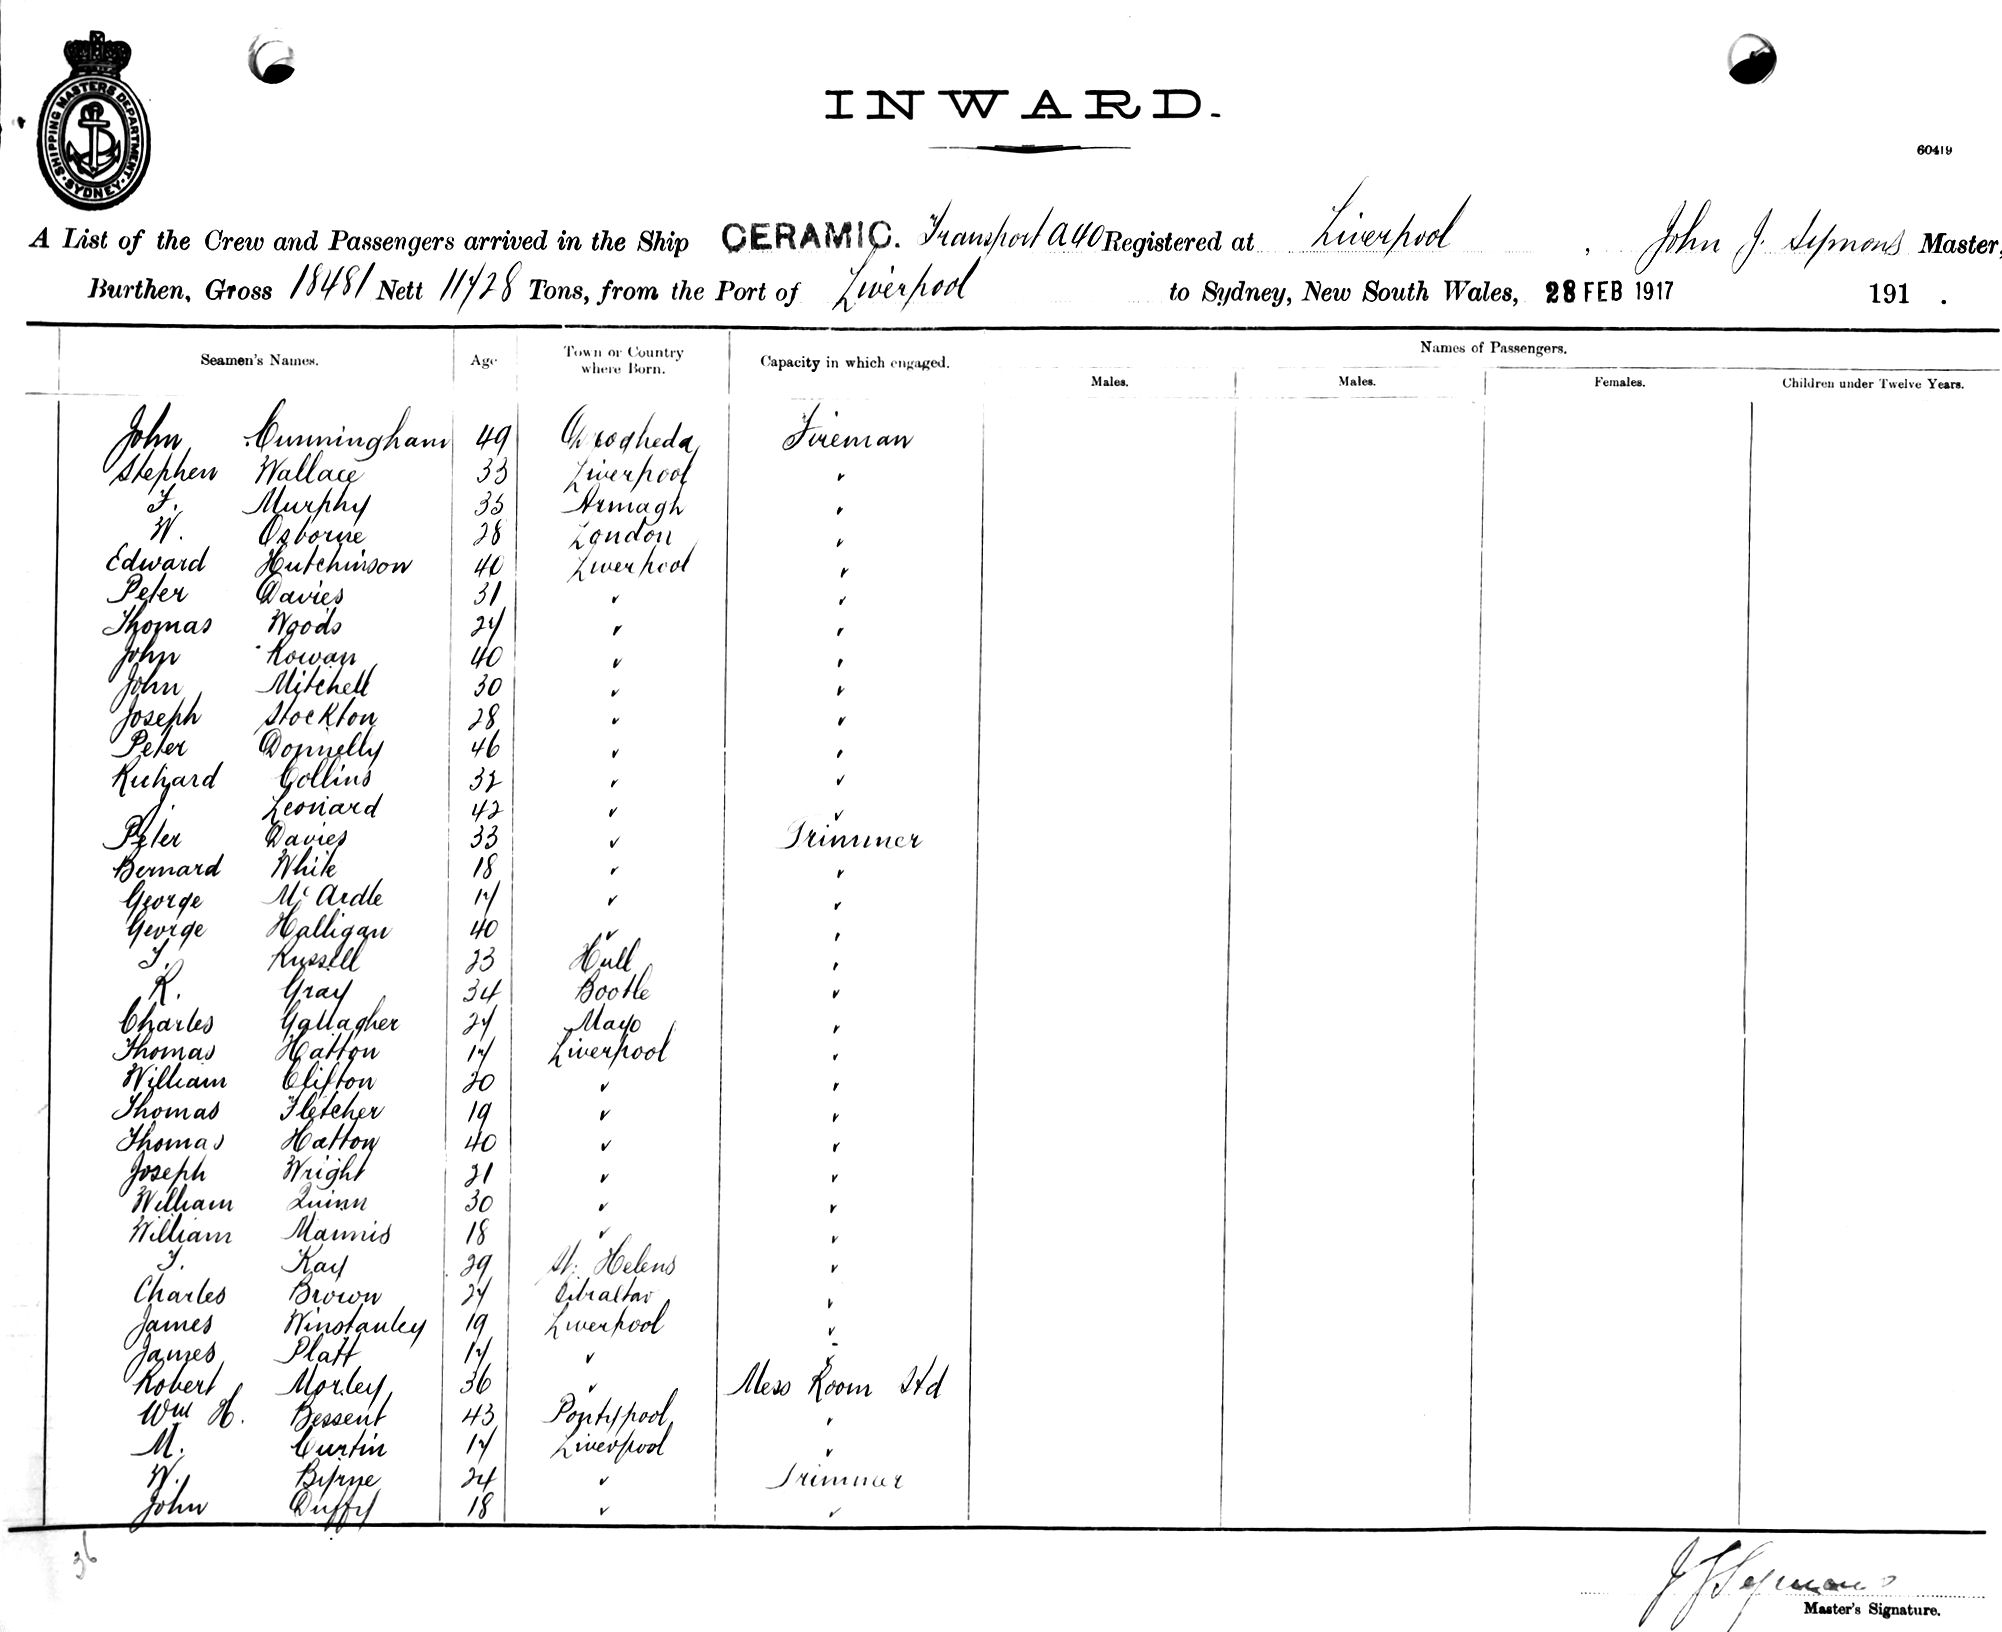 SHIPPING MASTERS DEPARTMENT. SYDNEY.
INWARD.
60419
A List of the Crew and Passengers arrived in the Ship CERAMIC. Transport A40 Registered at Liverpool, John J. Symons Master,
Burthen, Gross 18481 Nett 11728 Tons, from the Port of Liverpool to Sydney, New South Wales, 28 FEB 1917 191 .
Seamen's Names. Age Town or Country where Born. Capacity in which engaged. Names of Passengers.
Males. Males. Females. Children under Twelve Years.
John Cunningham 49 Drogheda Fireman
Stephen Wallace 33 Liverpool "
F. Murphy 35 Armagh "
W. Osborne 28 London "
Edward Hutchinson 40 Liverpool "
Peter Davies 31 " "
Thomas Woods 27 " "
John Rowan 40 " "
John Mitchell 30 " "
Joseph Stockton 28 " "
Peter Donnelly 46 " "
Richard Collins 32 " "
J. Leonard 42 " "
Peter Davies 33 " Trimmer
Bernard White 18 " "
George McArdle 17 " "
George Halligan 40 " "
T. Russell 23 Hull "
R. Gray 34 Bootle "
Charles Gallagher 27 Mayo "
Thomas Hatton 17 Liverpool "
William Clifton 20 " "
Thomas Fletcher 19 " "
Thomas Hatton 40 " "
Joseph Wright 21 " "
William Quinn 30 " "
William Mannis 18 " "
T. Kay 29 St. Helens "
Charles Brown 27 Gibraltar "
James Winstanley 19 Liverpool "
James Platt 17 " "
Robert Morley 36 " Mess Room Std
Wm H. Bessent 43 Pontypool "
M. Curtin 17 Liverpool "
W. Byrne 24 " Trimmer
John Duffy 18 " "
36
J J Symons
Master's Signature.